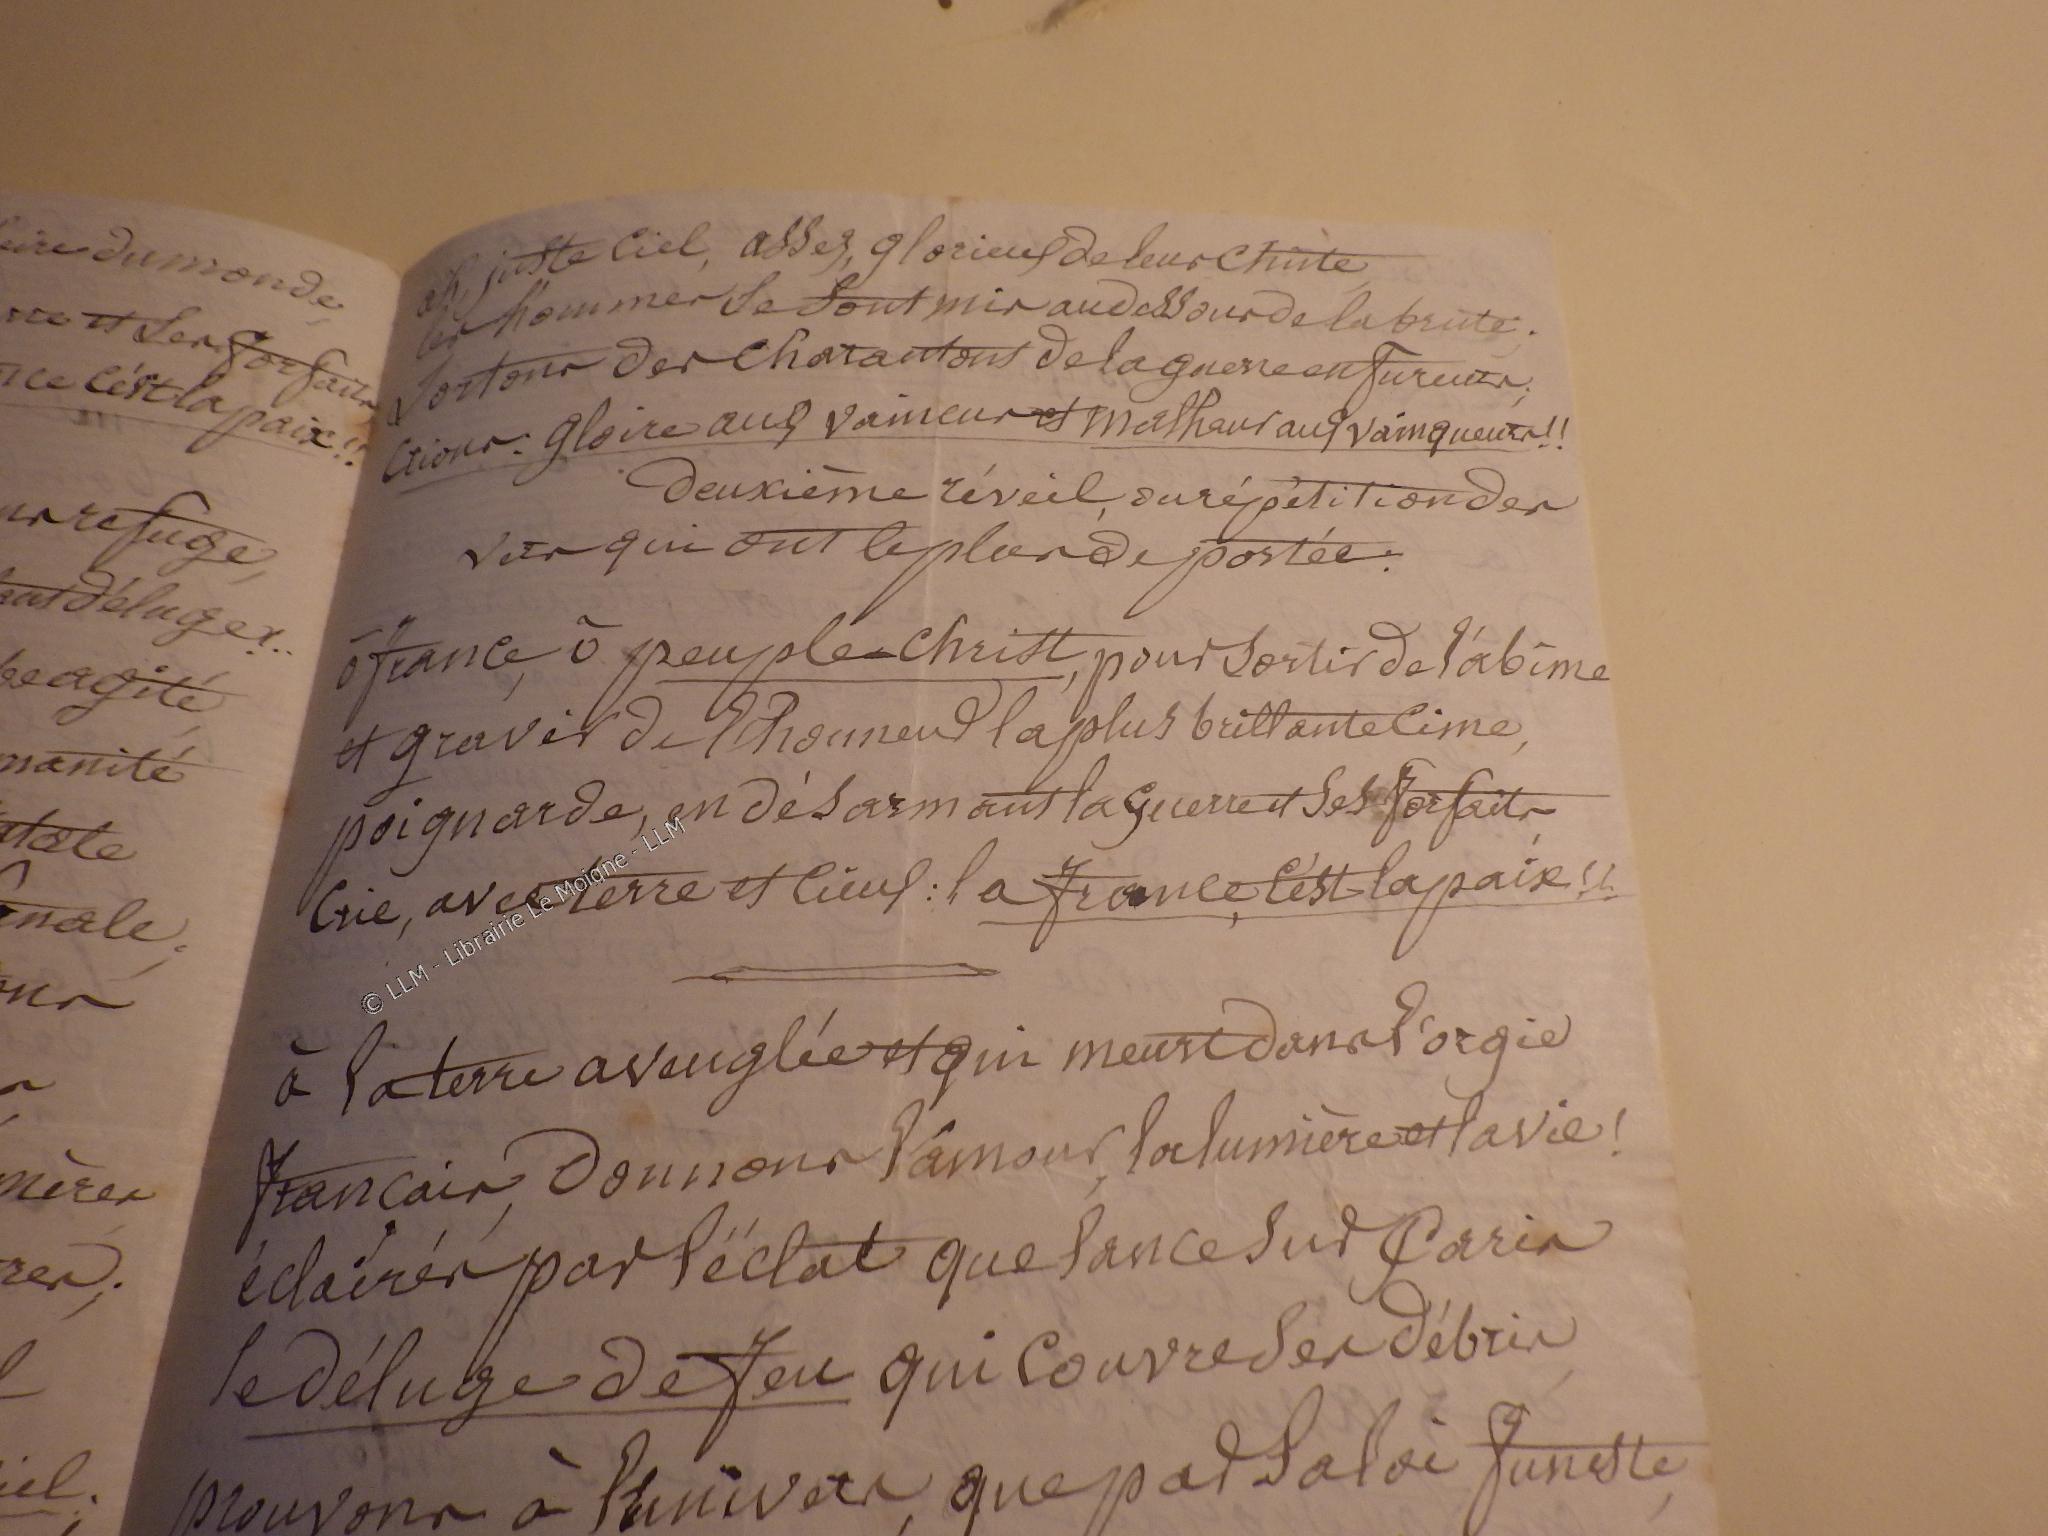 oire du monde,
rre et ses forfaits
nce c'est la paix!!
ur refuge,
ant déluge!..
be agité,
manité
male;
ons
mères
res;
iel;
ah, juste ciel, assez, glorieux de leur chute,
les hommes se sont mis au dessous de la brute.
sortons des charantons de la guerre en fureurs,
crions: gloire aux vaincus et malheur aux vainqueurs!!
deuxième réveil, ou répétition des
vers qui ont le plus de portée:
ô france, ô peuple-christ, pour sortir de l'abîme
et gravir de l'honneur la plus brillante cime,
poignarde, en désarmant la guerre et ses forfaits,
crie, avec terre et cieux: la france, c'est la paix!!
à la terre aveuglée et qui meurt dans l'orgie
français, donnons l'amour, la lumière et la vie!
éclairés par l'éclat que lance sur Paris
le déluge de feu qui couvre ses débris,
prouvons à l'univers, que par sa loi funeste,
© LLM - Librairie Le Moigne - LLM